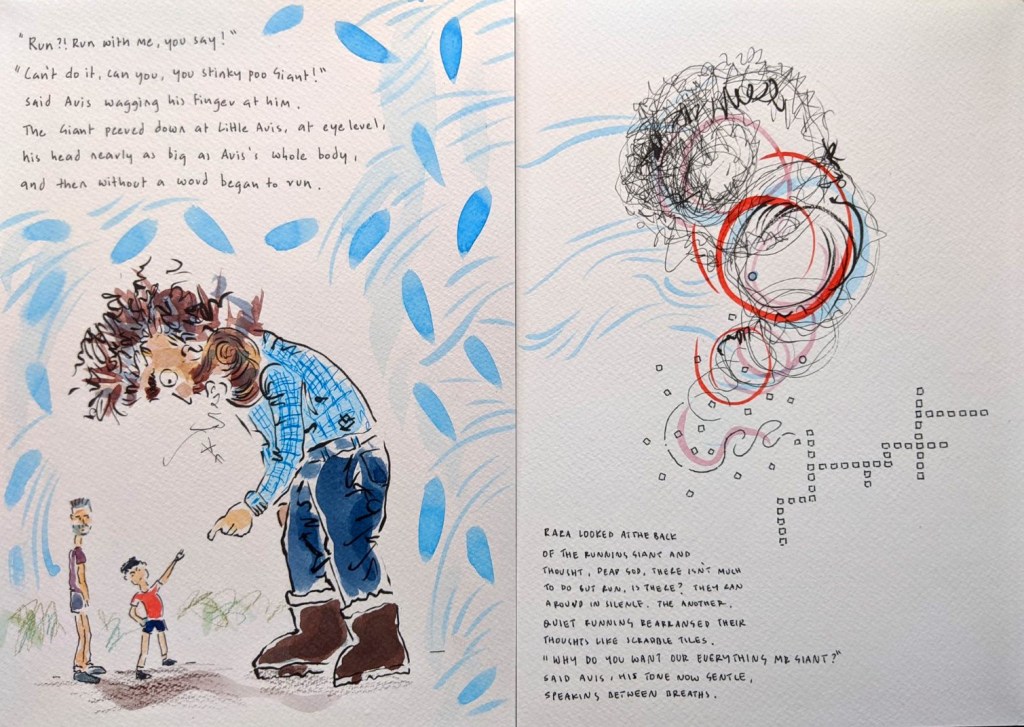 "Run?! Run with me, you say!"
"Can't do it, can you, you stinky poo Giant!"
said Avis wagging his finger at him.
The Giant peered down at Little Avis, at eye level,
his head nearly as big as Avis's whole body,
and then without a word began to run.
RARA LOOKED AT THE BACK
OF THE RUNNING GIANT AND
THOUGHT, DEAR GOD, THERE ISN'T MUCH
TO DO BUT RUN, IS THERE? THEY RAN
AROUND IN SILENCE. THE ANOTHER.
QUIET RUNNING REARRANGED THEIR
THOUGHTS LIKE SCRABBLE TILES.
"WHY DO YOU WANT OUR EVERYTHING MR GIANT?"
SAID AVIS, HIS TONE NOW GENTLE,
SPEAKING BETWEEN BREATHS.